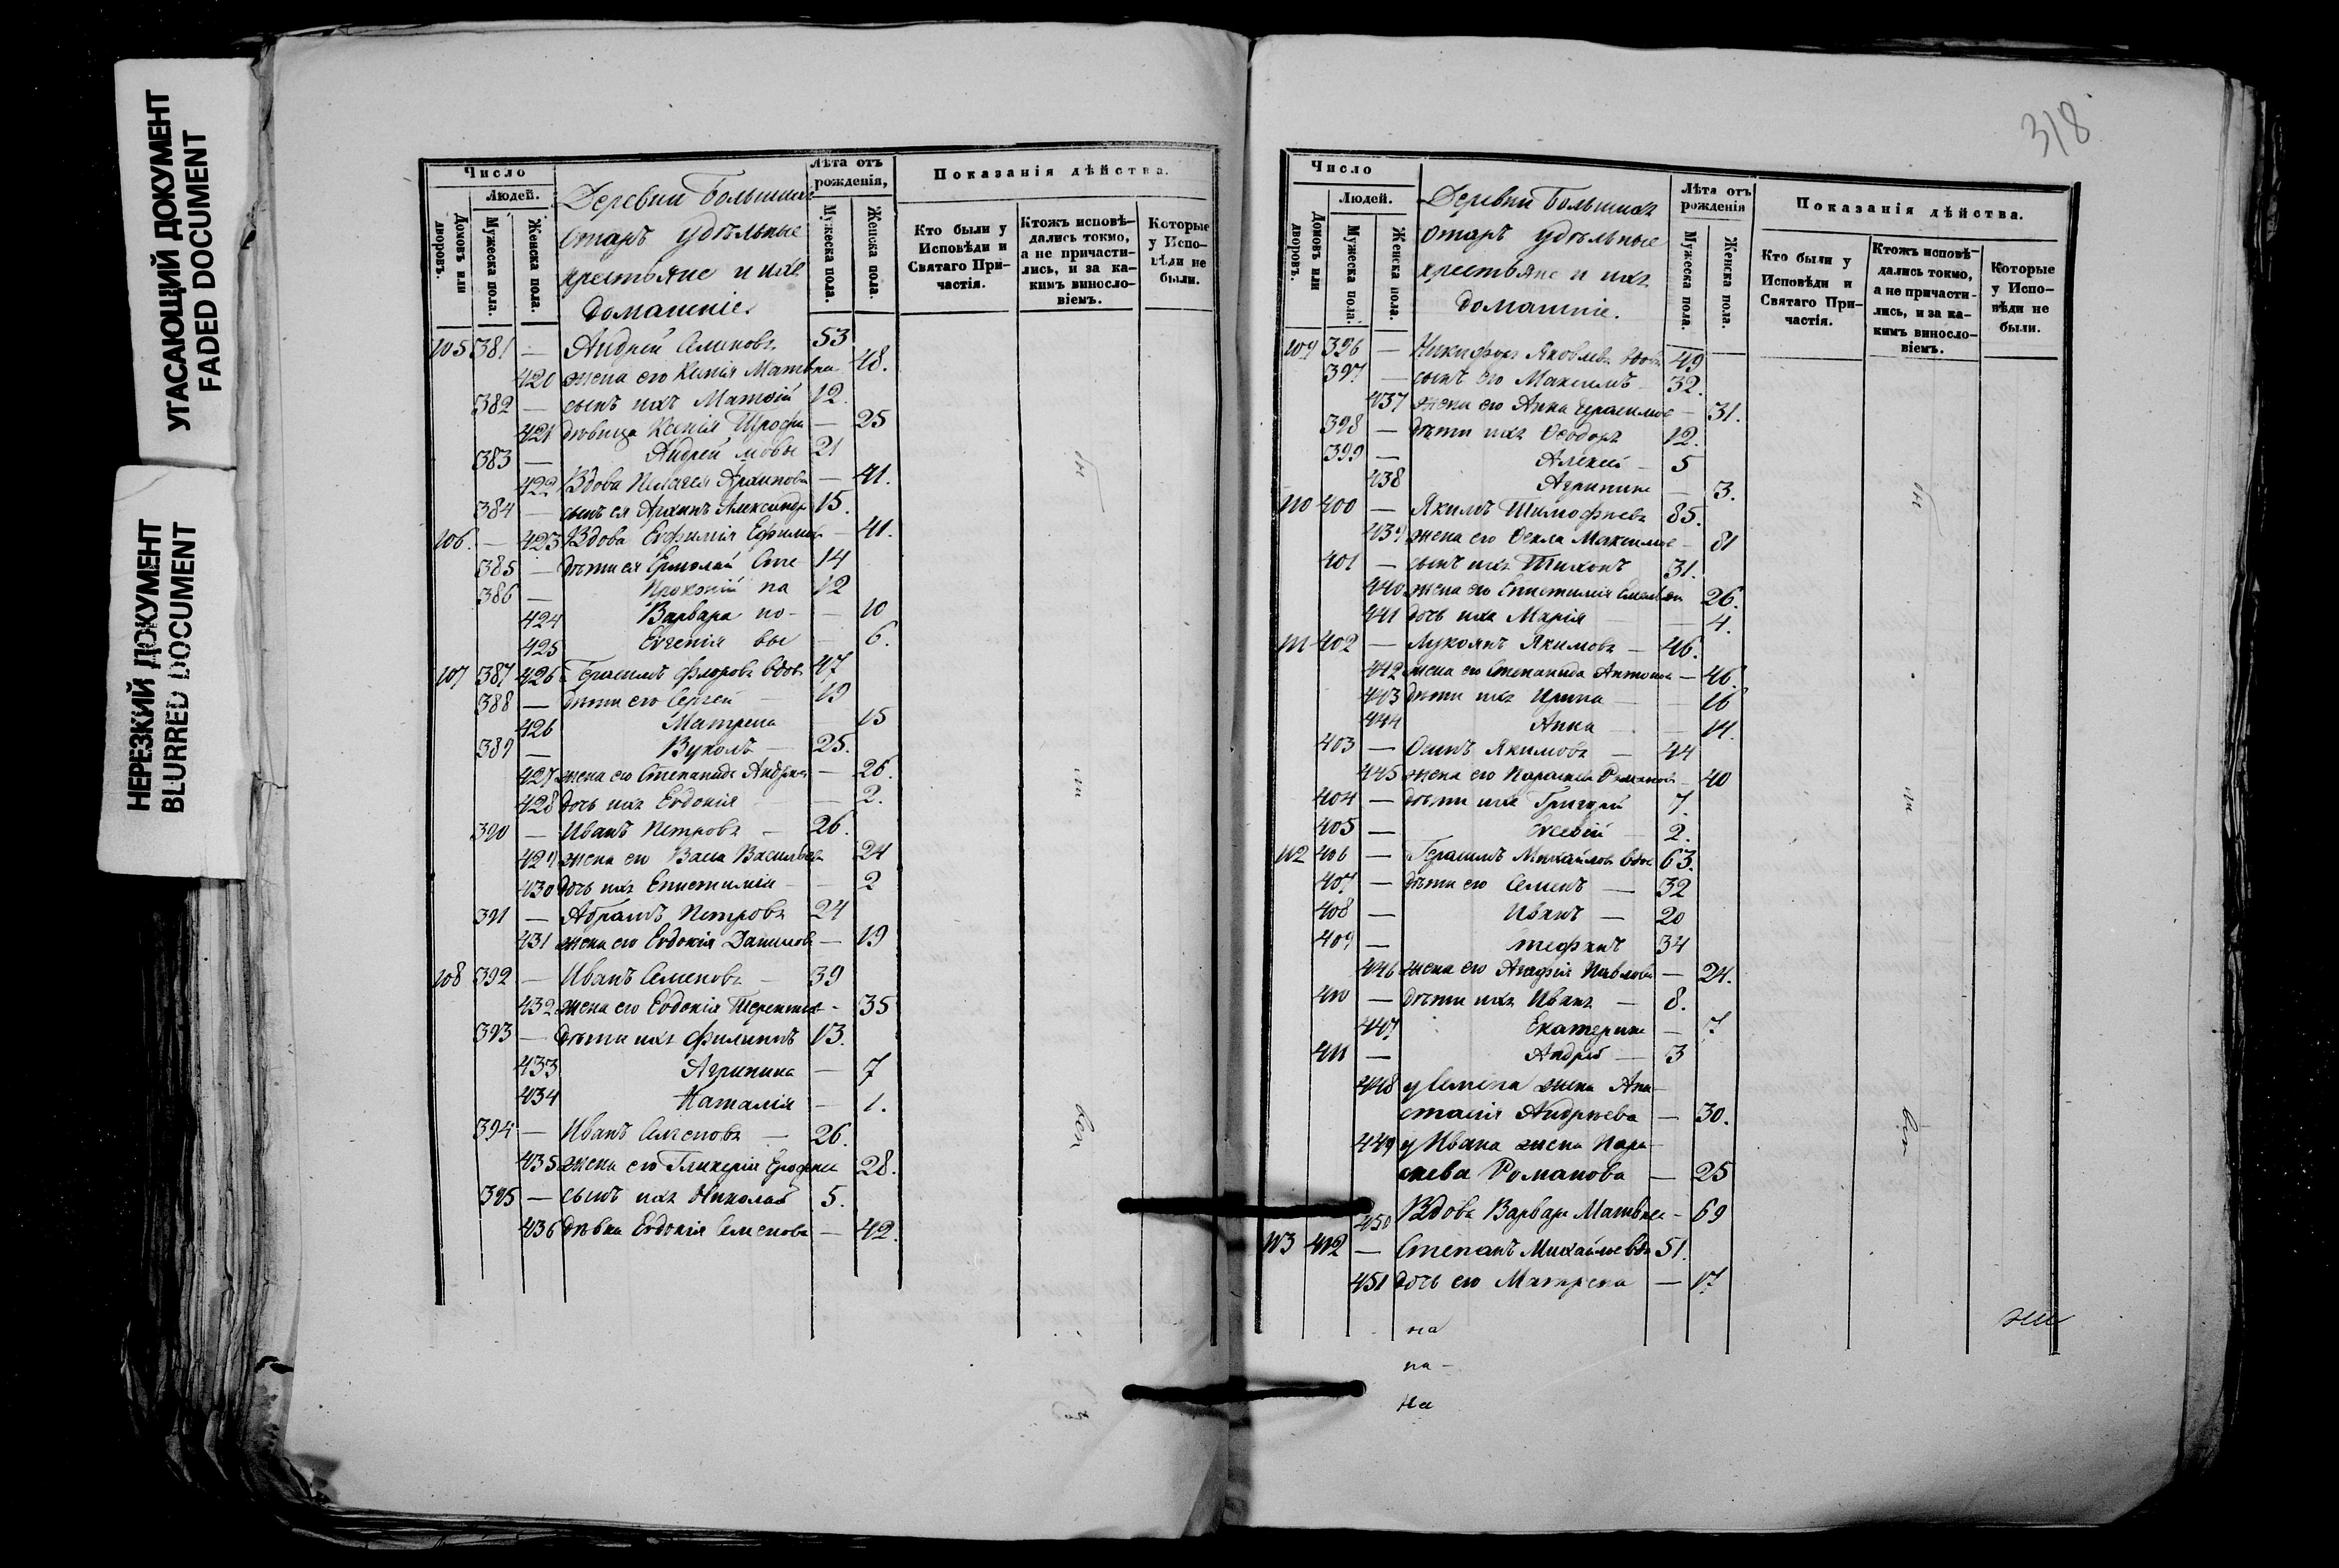 УГАСАЮЩИЙ ДОКУМЕНТ
FADED DOCUMENT
НЕРЕЗКИЙ ДОКУМЕНТ
BLURRED DOCUMENT
Число
Людей.
Домовъ или дворовъ.
Мужеска пола.
Женска пола.
Деревни Большихъ
Отаръ удѣльные
крестьяне и ихъ
домашніе.
Лѣта отъ рожденія,
Мужеска пола.
Женска пола.
Показанія дѣйства.
Кто были у Исповѣди и Святаго Причастія.
Ктожъ исповѣдались токмо, а не причастились, и за какимъ винословіемъ.
Которые у Исповѣди не были.
105 381 — Андрей Семеновъ 53
420 жена его Ксенія Матвѣева 48.
382 — сынъ ихъ Матвій 12.
421 дѣвица Ксенія Трофи — 25
383 — Андрей мовы 21
422 Вдова Пелагея Архипова — 41.
384 — сынъ ея Архипъ Александр 15.
106. — 423 Вдова Евфимія Ефимова — 41.
385 — дѣти ея Ермолай Сте- 14
386 — Прокопій па 12
424 Варвара но- — 10
425 Евгенія вы — 6.
107 387 426 Герасимъ Флоровъ вдов 47
388 — дѣти его Сергей — 19
426 Матрена — 15
389 — Вуколъ — 25.
427 жена его Степанида Андрее — 26.
428 дочь ихъ Евдокія — 2.
390 — Иванъ Петровъ — 26.
429 жена его Васса Васильева 24
430 дочь ихъ Епистимія — 2
391 — Абрамъ Петровъ 24
431 жена его Евдокія Данилова — 19
108 392 — Иванъ Семеновъ — 39
432 жена его Евдокія Терентьева - 35
393 — дѣти ихъ Филиппъ 13.
433 Агрипина — 7
434 Наталія — 1.
394 — Иванъ Семеновъ — 26.
435 жена его Гликерія Ерофее 28.
395 — сынъ ихъ Николай 5.
436 дѣвка Евдокія Семенова — 42.
бы
ли
всѣ
318
Число
Людей.
Домовъ или дворовъ.
Мужеска пола.
Женска пола.
Деревни Большихъ
Отаръ удѣльные
крестьяне и ихъ
домашніе.
Лѣта отъ рожденія
Мужеска пола.
Женска пола.
Показанія дѣйства.
Кто были у Исповѣди и Святаго Причастія.
Ктожъ исповѣдались токмо, а не причастились, и за какимъ винословіемъ.
Которые у Исповѣди не были.
109 396 — Никифоръ Яковлевъ вдов 49
397. — сынъ его Максимъ 32.
437 жена его Анна Герасимов — 31.
398 — дѣти ихъ Ѳеодоръ 12.
399 — Алексей — 5
438 Агрипина — 3.
110 400 — Якимъ Тимофѣевъ 85.
439 жена его Ѳекла Максимов — 81
401 — сынъ ихъ Тихонъ 31.
440 жена его Епистимія 26.
441 дочь ихъ Марія — 4.
111 402 — Лукоянъ Якимовъ — 46.
442 жена его Степанида Антонов — 46.
443 дѣти ихъ Ирина — 16
444 Анна — 11.
403 — Осипъ Якимовъ — 44
445 жена его Параскева Романов — 40
404 — дѣти ихъ Григорій 7.
405 — Евсевій — 2.
112 406 — Герасимъ Михайловъ вдов 63.
407 — дѣти его Семенъ — 32
408 — Иванъ — 20
409 — Стефанъ 34
446 жена его Агафія Павлова — 24.
410 — дѣти ихъ Иванъ — 8.
447 Екатерина — 7
411 — Андрей — 3
448 у Семена жена Ана-
стасія Андрѣева — 30.
449 у Ивана жена Пара-
скева Романова — 25
450 Вдова Варвара Матвѣева - 69
113 412 — Степанъ Михайловъ 51.
451 дочь его Матрена — 17
бы
ли
всѣ
на
на —
На